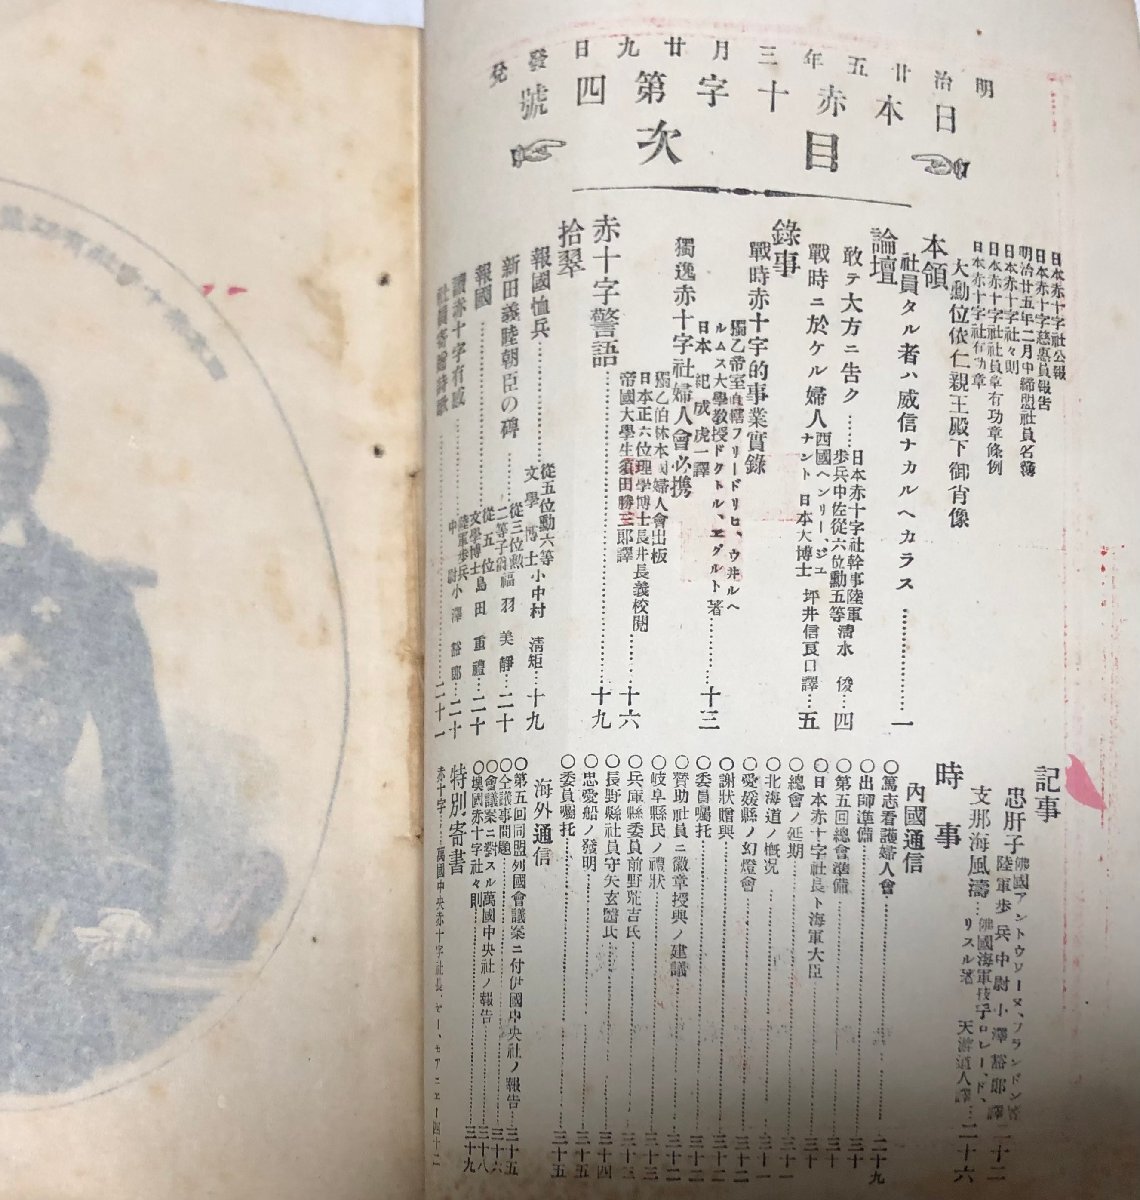 明治廿五年三月廿九日發兌
日本赤十字第四號
目次
日本赤十字社公報
日本赤十字慈惠員報告
明治廿五年二月中締盟社員名簿
日本赤十字社々則
日本赤十字社社員章有功章條例
日本赤十字社有功章
大勳位依仁親王殿下御肖像
本領
社員タル者ハ威信ナカルヘカラス……一
論壇
敢テ大方ニ告ク……日本赤十字社幹事陸軍歩兵中佐從六位勳五等 清水俊…四
戰時ニ於ケル婦人 西國ヘンリー、ジュナント 日本大博士 坪井信良口譯…五
錄事
戰時赤十字的事業實錄
獨乙帝室直轄フリードリヒ、ウ井ルヘルムス大學教授ドクトル、エグルト著
日本 紀成虎一譯……十三
獨逸赤十字社婦人會必携
獨乙伯林本國婦人會出板
日本正六位理學博士長井長義校閱
帝國大學生須田勝三郎譯……十六
赤十字警語……十九
拾翠
報國恤兵……從五位勳六等文學博士小中村清矩…十九
新田義陸朝臣の碑……從三位勳二等子爵福羽美靜…二十
報國……從五位文學博士島田重禮…二十
讀赤十字有感……陸軍歩兵中尉小澤豁郎…二十
社員寄贈詩歌……二十一
記事
忠肝子 佛國アントウワーヌ、フランドン著 陸軍歩兵中尉小澤豁郎譯 二十二
支那海風濤… 天游道人譯…二十六
時事
內國通信
○篤志看護婦人會……二十九
○出師準備……三十
○第五回總會準備……三十
○日本赤十字社長ト海軍大臣……三十
○總會ノ延期……三十一
○北海道ノ概况……三十一
○愛媛縣ノ幻燈會……三十二
○謝狀贈與……三十二
○委員囑托……三十二
○贊助社員ニ徽章授與ノ建議……三十二
○岐阜縣民ノ禮狀……三十三
○兵庫縣委員前野荘吉氏……三十三
○長野縣社員守矢玄醫氏……三十四
○忠愛船ノ發明……三十五
○委員囑托……三十五
海外通信
○第五回同盟列國會議案ニ付伊國中央社ノ報告……三十五
○仝議事問題……三十六
○會議案ニ對スル萬國中央社ノ報告……三十八
○墺國赤十字社々則……三十九
特別寄書
赤十字……萬國中央赤十字社長 四十二